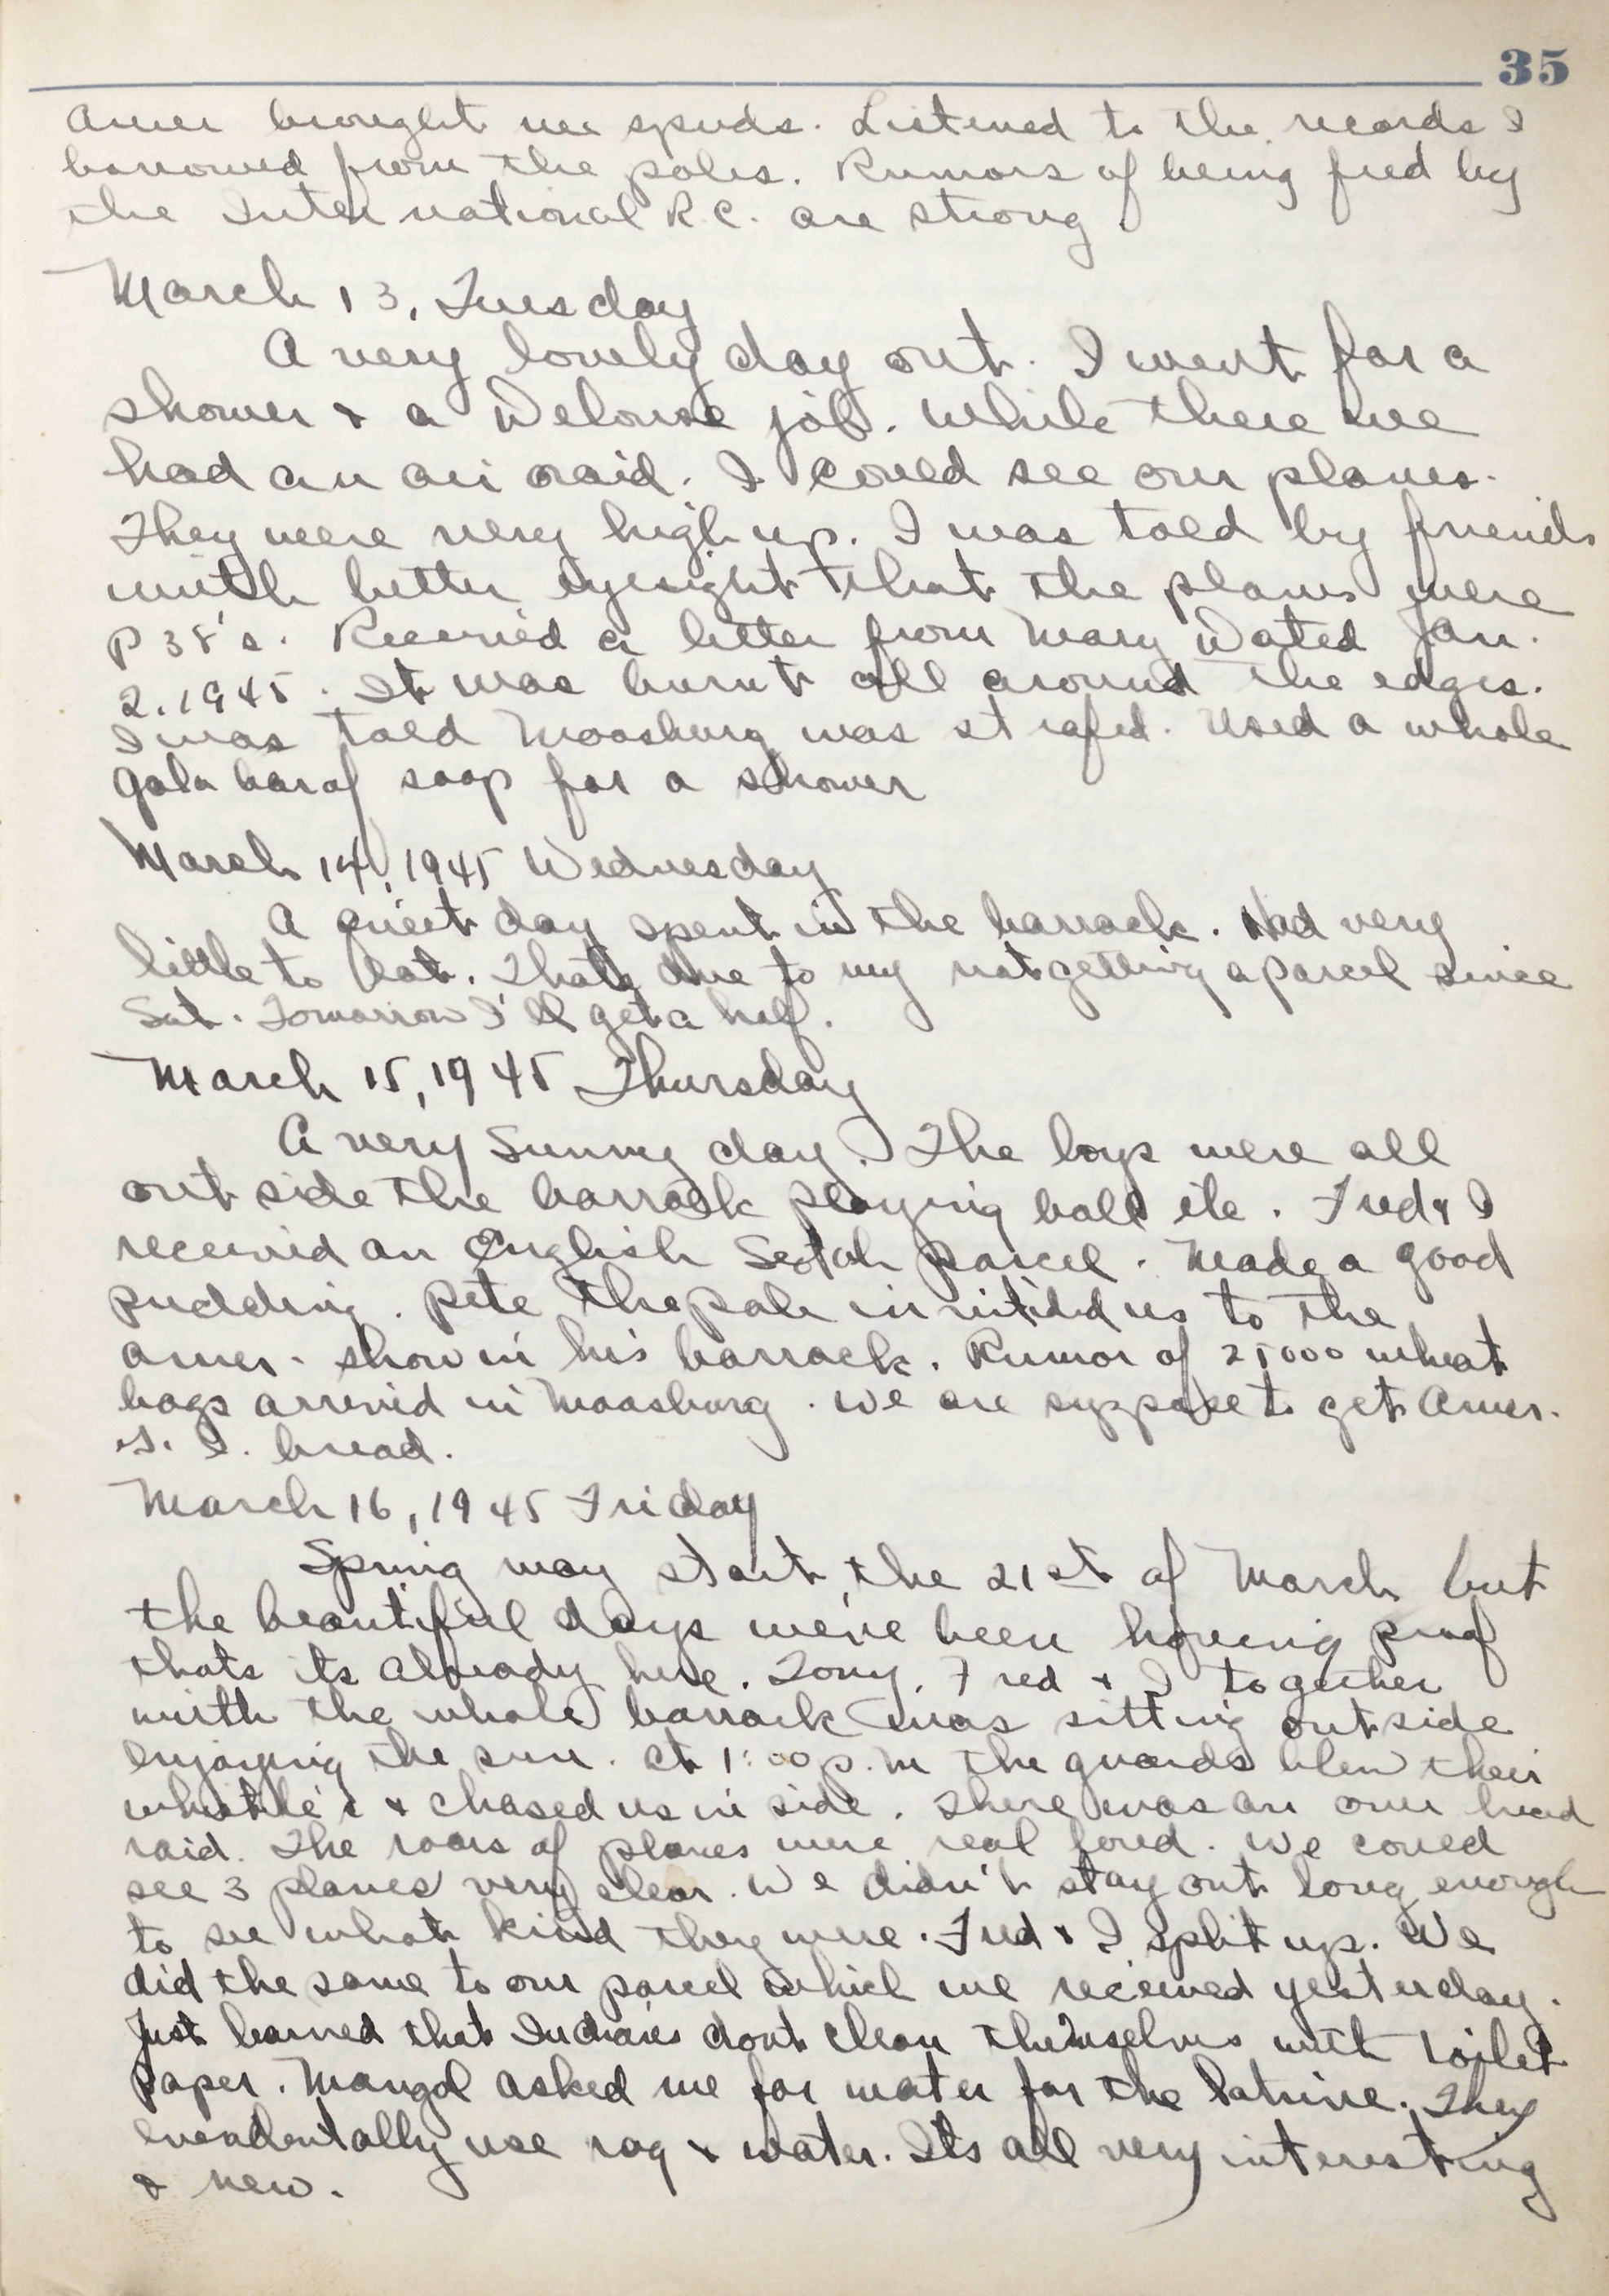 35
Amer brought me spuds. Listened to the records I
borrowed from the poles. Rumors of being fied by
the International R.C. are strong
March 13, Tuesday
A very lovely day out. I went for a
shower & a Delouse job. While there we
had an air raid. I could see our planes.
They were very high up. I was told by friends
with better eyesight that the planes were
P 38's. Received a letter from Mary Dated Jan.
2. 1945. It was burnt all around the edges.
I was told Moosburg was strafed. Used a whole
Gala bar of soap for a shower
March 14, 1945 Wednesday
A quiet day spent in the barrack. Had very
little to eat. Thats due to my not getting a parcel since
Sat. Tomorrow I'll get a half.
March 15, 1945 Thursday
A very Sunny day. The boys were all
outside the barrack playing ball etc. Fred & I
received an English Scotch parcel. Made a good
pudding. Pete the pole invited us to the
amer. show in his barrack. Rumor of 25000 wheat
bags arrived in Moosburg. We are suppose to get Amer.
G. I. bread.
March 16, 1945 Friday
Spring may start the 21st of March but
the beautiful days we've been having proof
thats its already here. Tony, Fred & I together
with the whole barrack was sitting outside
enjoying the sun. At 1:00 p.m the guards blew their
whistle's & chased us in side. There was an over head
raid. The roars of planes were real loud. We could
see 3 planes very clear. We didn't stay out long enough
to see what kind they were. Fred & I split up. We
did the same to our parcel which we received yesterday.
Just learned that Indians dont clean themselves with toilet
paper. Mangol asked me for water for the latrine. They
evendentally use rag & water. Its all very interesting
& new.